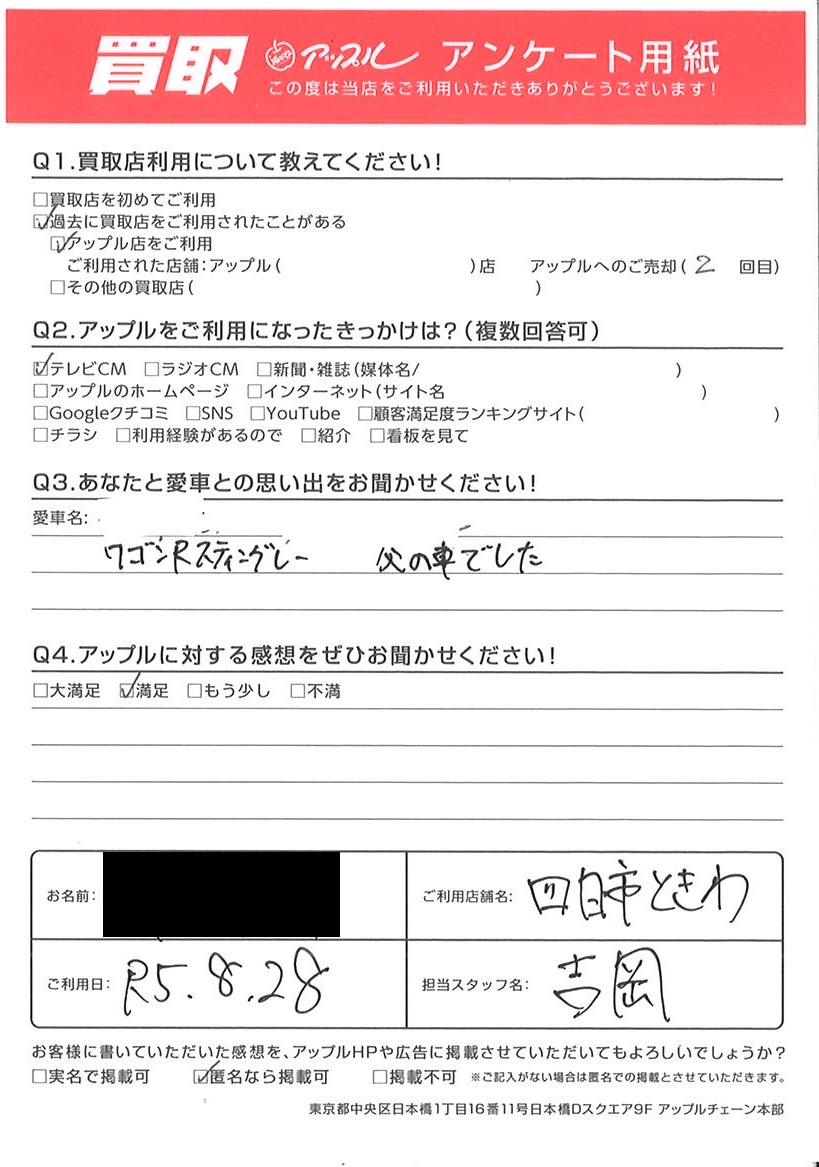 買取 アップル アンケート用紙
この度は当店をご利用いただきありがとうございます！
Q1.買取店利用について教えてください！
□買取店を初めてご利用
☑過去に買取店をご利用されたことがある
☑アップル店をご利用
ご利用された店舗：アップル（ ）店 アップルへのご売却（ 2 回目）
□その他の買取店（ ）
Q2.アップルをご利用になったきっかけは？（複数回答可）
☑テレビCM □ラジオCM □新聞・雑誌（媒体名/ ）
□アップルのホームページ □インターネット（サイト名 ）
□Googleクチコミ □SNS □YouTube □顧客満足度ランキングサイト（ ）
□チラシ □利用経験があるので □紹介 □看板を見て
Q3.あなたと愛車との思い出をお聞かせください！
愛車名：
ワゴンRスティングレー 父の車でした
Q4.アップルに対する感想をぜひお聞かせください！
□大満足 ☑満足 □もう少し □不満
お名前：
ご利用店舗名： 四日市ときわ
ご利用日： R5.8.28
担当スタッフ名： 吉岡
お客様に書いていただいた感想を、アップルHPや広告に掲載させていただいてもよろしいでしょうか？
□実名で掲載可 ☑匿名なら掲載可 □掲載不可 ※ご記入がない場合は匿名での掲載とさせていただきます。
東京都中央区日本橋1丁目16番11号日本橋Dスクエア9F アップルチェーン本部